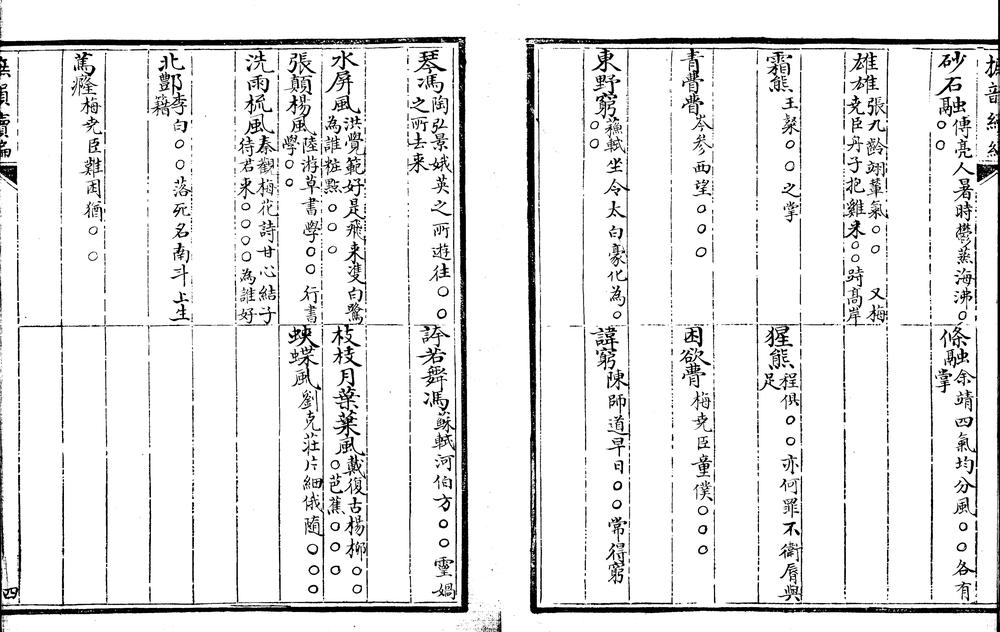 砂石融傅亮人暑時鬱蒸海沸○
○○
條融余靖四氣均分風○○各有
掌
雄雄張九齡翊葦氣○○又梅
堯臣丹子抱雞来○○時高岸
霜熊王褒○○之掌
猩熊程俱○○亦何罪不衛唇與
足
青瞢瞢岑參西望○○○
困欲瞢梅堯臣童僕○○○
東野窮蘇軾坐令太白豪化為○
○○
諱窮陳師道早日○○常得窮
琴馮陶弘景娥英之所遊往○○
之所去来
訏若舞馮蘇軾河伯方○○靈媧
水屏風洪覺範好是飛来雙白鷺
為誰粧點○○○
枝枝月葉葉風戴復古楊柳○○
○芭蕉○○○
張顛楊風陸游草書學○○行書
學○○
蛺蝶風劉克莊片細俄隨○○○
洗雨梳風秦觀梅花詩甘心結子
待君来○○○○為誰好
北酆李白○○落死名南斗上生
籍
篤癃梅堯臣雖困猶○○
四